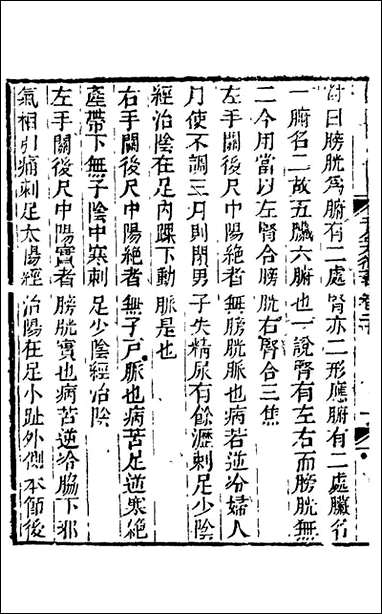 對曰膀胱爲腑有二處腎亦二形應腑有二處臟名
一腑名二故五臟六腑也一說腎有左右而膀胱無
二今用當以左腎合膀胱右腎合三焦
左手關後尺中陽絕者無膀胱脈也病苦逆冷婦人
月使不調三月則閉男子失精尿有餘瀝刺足少陰
經治陰在足內踝下動脈是也
右手關後尺中陽絕者無子戶脈也病苦足逆寒絕
產帶下無子陰中寒刺足少陰經治陰
左手關後尺中陽實者膀胱實也病苦逆冷脇下邪
氣相引痛刺足太陽經治陽在足小趾外側本節後